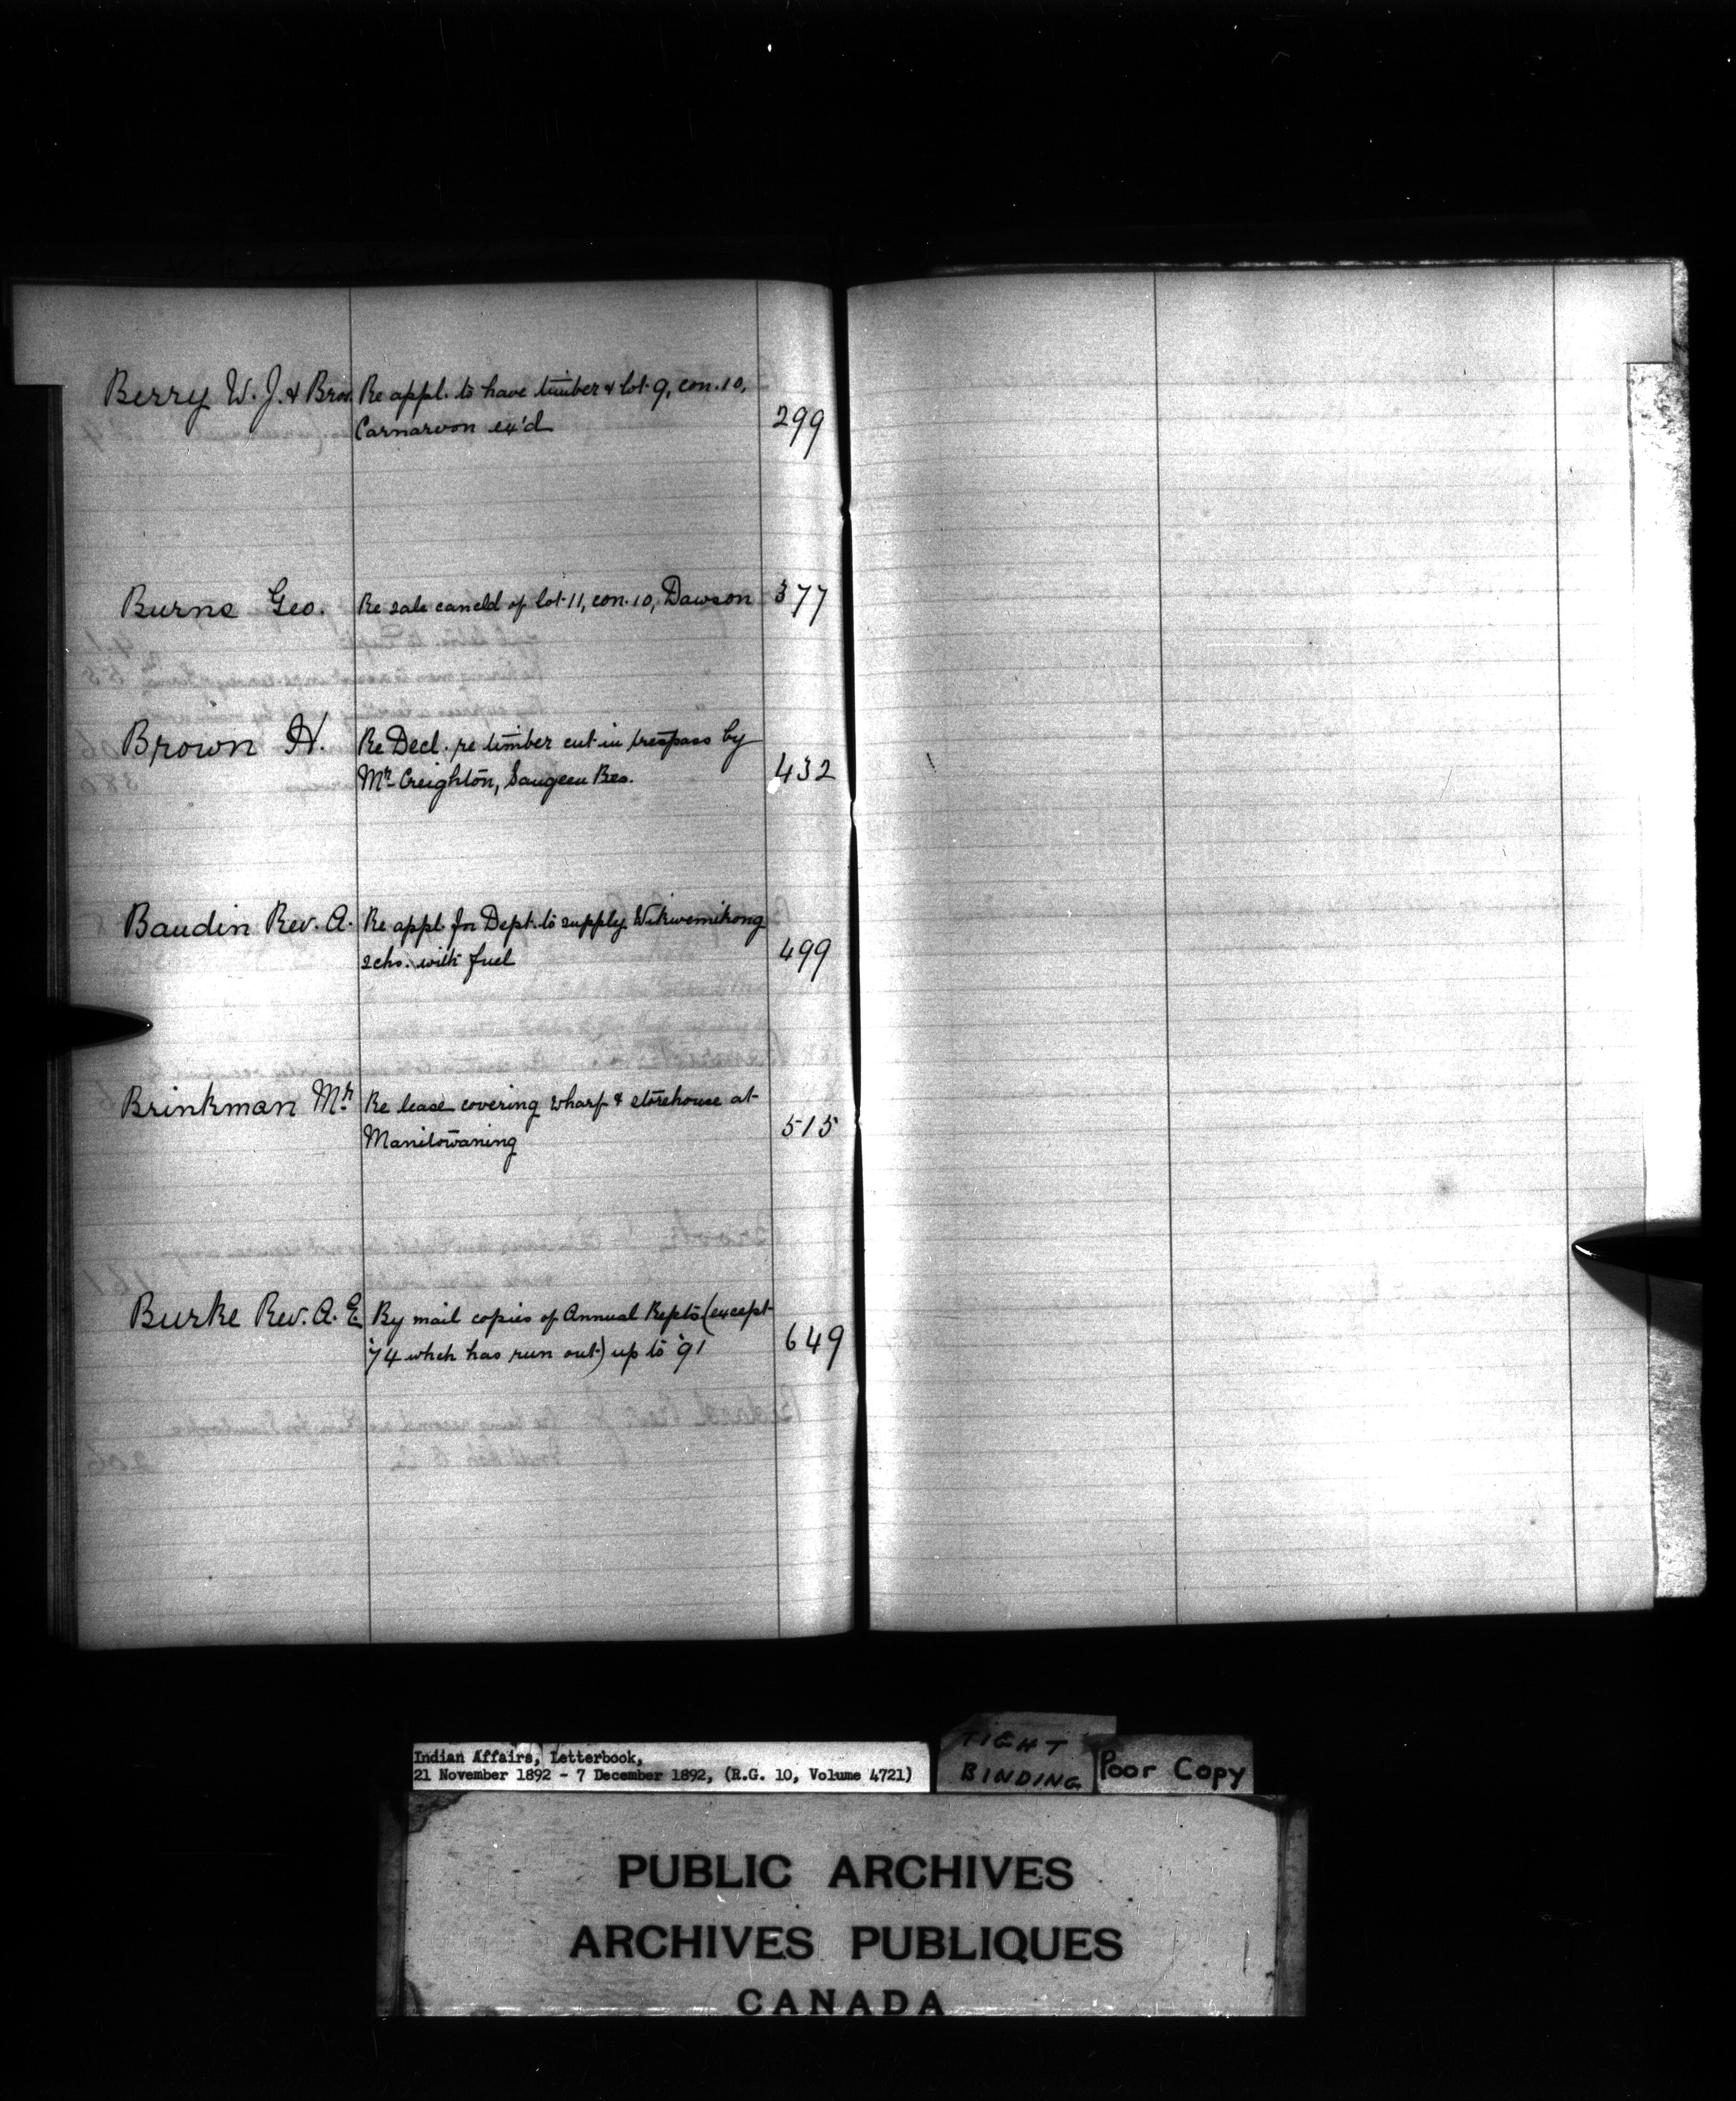 Berry W. J. & Bros. Re appl. to have timber & lot 9, con. 10,
Carnarvon ex'd 299
Burns Geo. Re sale canceld of lot 11, con. 10, Dawson 377
Brown H. Re Decl. re timber cut in trespass by
Mr. Creighton, Saugeen Res. 432
Baudin Rev. A. Re appl. for Dept. to supply Wikwemikong
schs. with fuel 499
Brinkman Mr. Re lease covering wharf & storehouse at
Manitowaning 515
Burke Rev. A. E. By mail copies of Annual Repts (except
'74 which has run out) up to '91 649
Indian Affairs, Letterbook,
21 November 1892 - 7 December 1892, (R.G. 10, Volume 4721)
TIGHT
BINDING
Poor Copy
PUBLIC ARCHIVES
ARCHIVES PUBLIQUES
CANADA